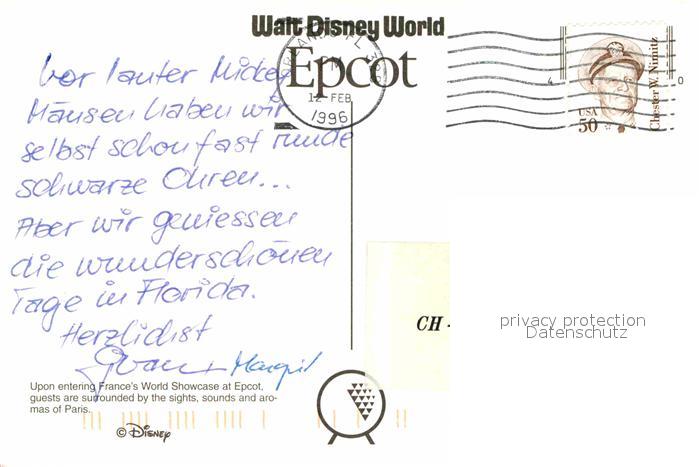 Walt Disney World
Epcot
12 FEB
1996
USA
50
Chester W. Nimitz
4
0
Vor lauter Mickey
Mäusen haben wir
selbst schon fast runde
schwarze Ohren...
Aber wir geniessen
die wunderschönen
Tage in Florida.
Herzlichst
CH -
privacy protection
Datenschutz
Upon entering France's World Showcase at Epcot,
guests are surrounded by the sights, sounds and aro-
mas of Paris.
© Disney